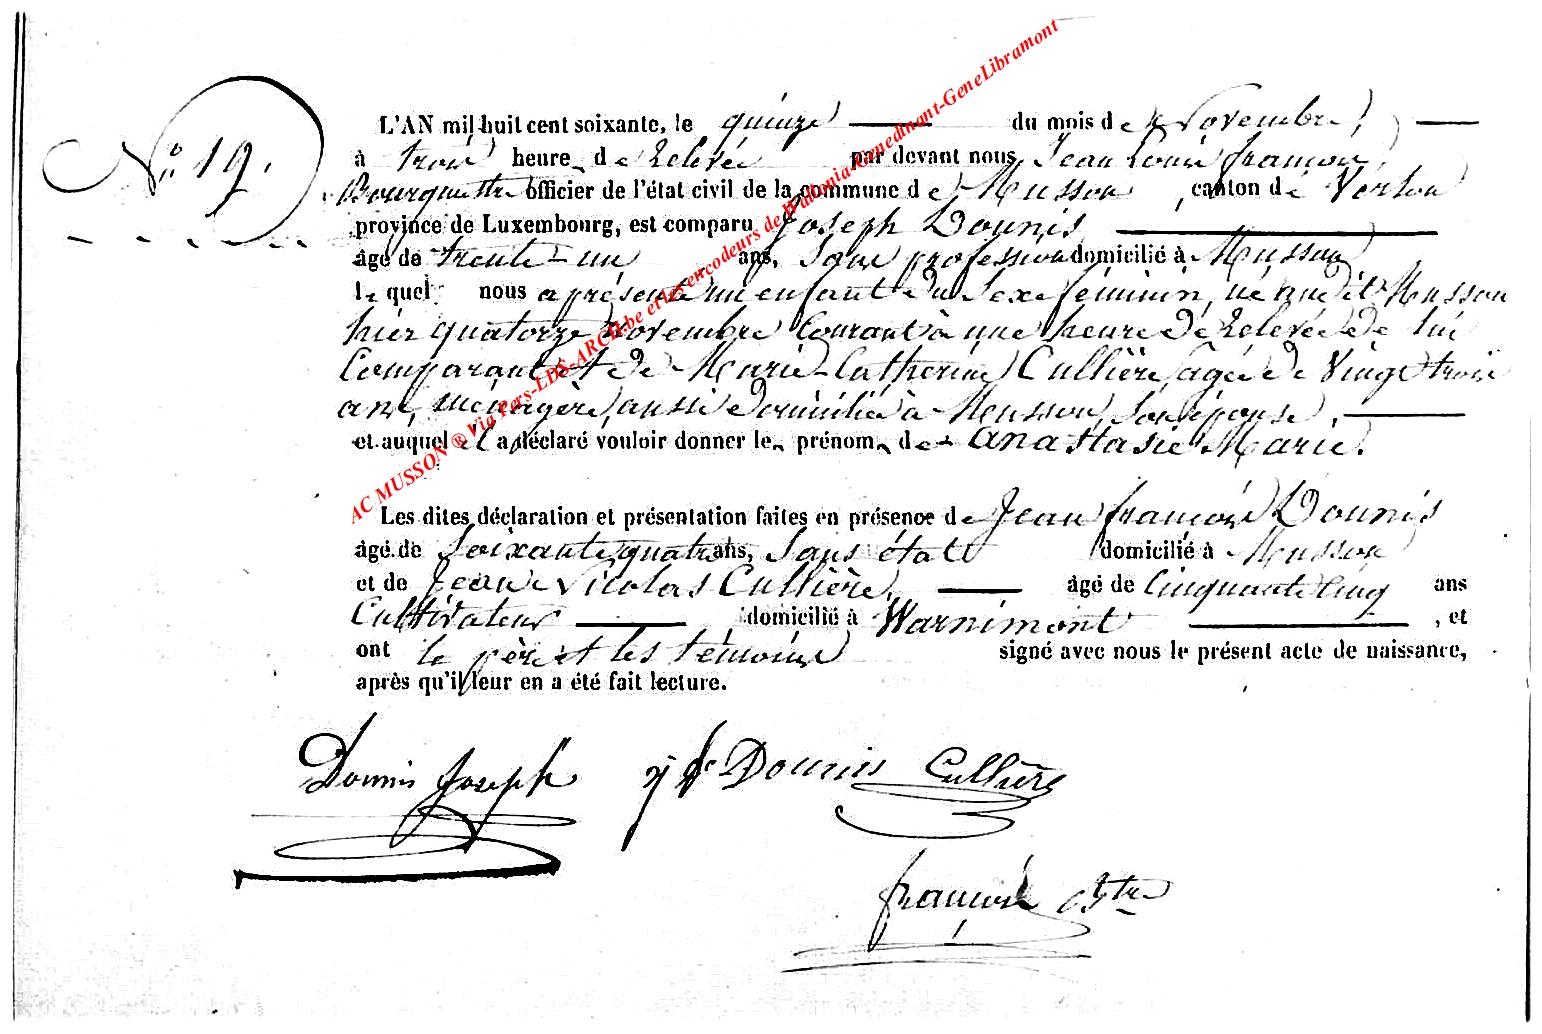 N.o 19.
L'AN mil huit cent soixante, le quinze du mois de Novembre,
à trois heure de Relevée par devant nous Jean Louis françois,
Bourgmestre officier de l'état civil de la commune de Musson, canton de Virton
province de Luxembourg, est comparu Joseph Dounis
âgé de trente-un ans, Sans profession domicilié à Musson
lequel nous a présenté un enfant du Sexe féminin, né audit Musson
hier quatorze Novembre Courant à une heure de Relevée de lui
Comparant et de Marie-Catherine Cullière, âgée de Vingt trois
ans, ménagère, aussi domiciliée à Musson, Son épouse,
et auquel il a déclaré vouloir donner les prénoms de Anastasie Marie.
Les dites déclaration et présentation faites en présence de Jean françois Dounis
âgé de Soixante quatre ans, Sans état domicilié à Musson
et de Jean Nicolas Cullière, âgé de Cinquante Cinq ans
Cultivateur domicilié à Warnimont, et
ont le père et les témoins signé avec nous le présent acte de naissance,
après qu'il leur en a été fait lecture.
Dounis Joseph j fs Dounis Cullière
françois
AC MUSSON ® Via Pers-LDS-ARCH.be et les encodeurs de Wallonia-Genedinant-GeneLibramont